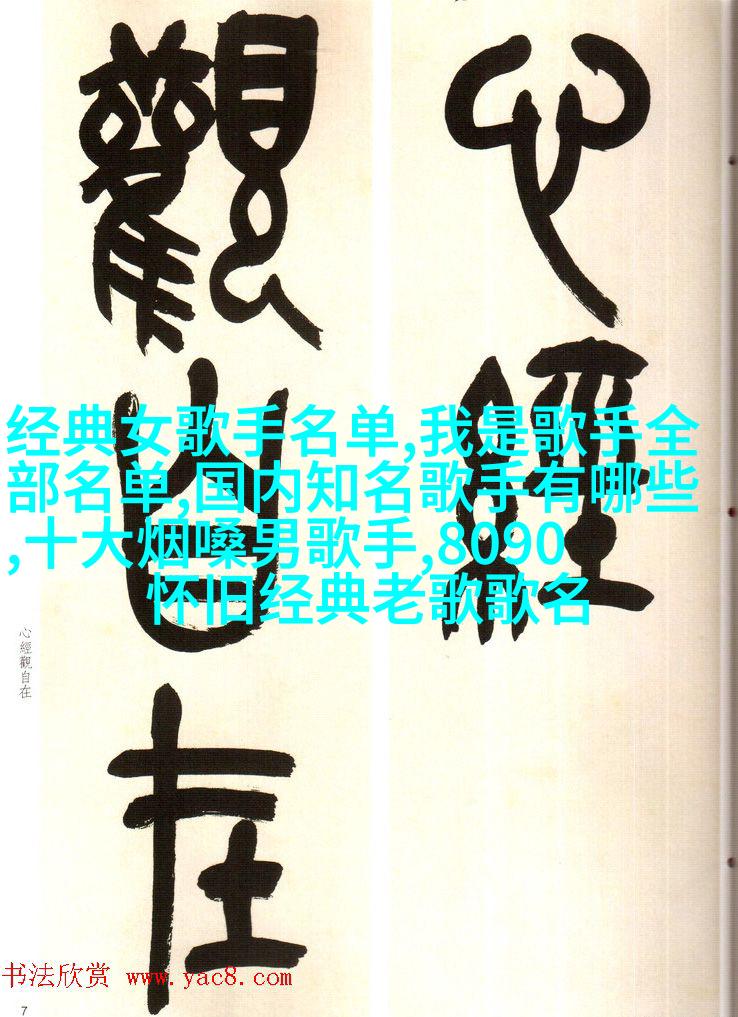 心經
觀自在
经典女歌手名单,我是歌手全
部名单,国内知名歌手有哪些
,十大烟嗓男歌手,8090
怀旧经典老歌歌名
心經觀自在
书法欣赏 www.yac8.com
7